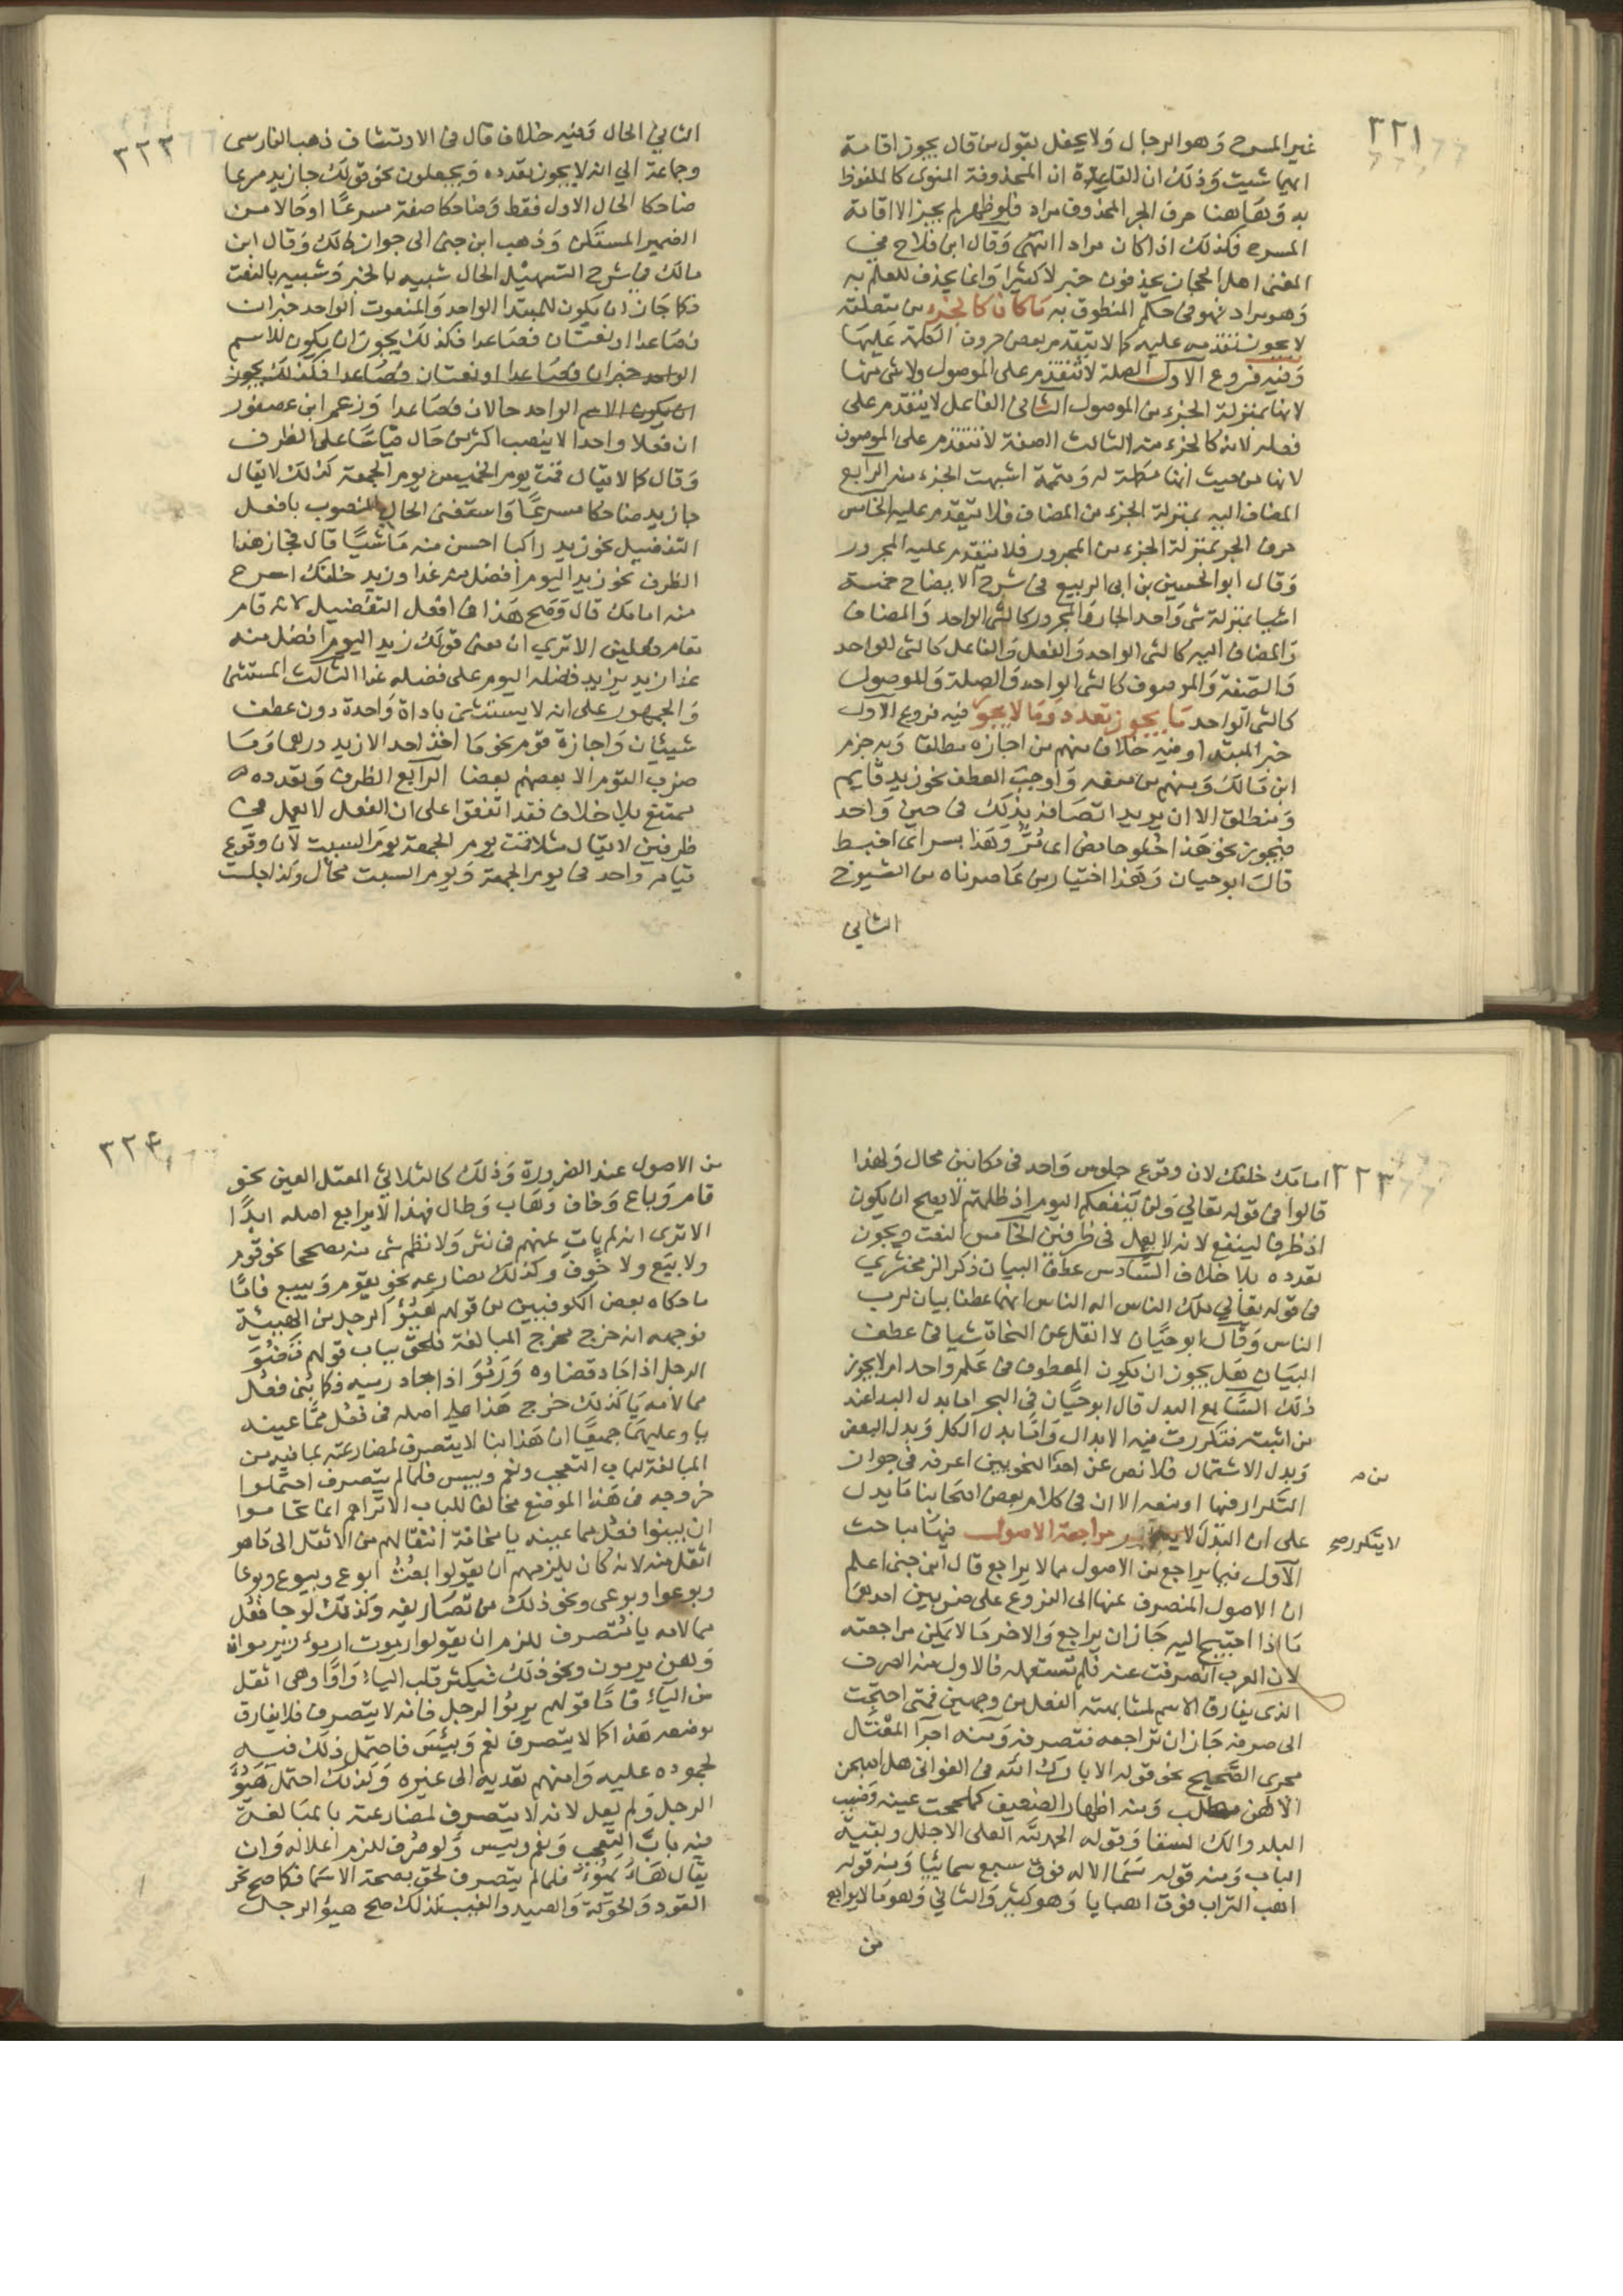 ٣٢١
غير المسرح وهو الرجال ولا يحفل بقول من قال يجوز اقامة
ايهما شيت وذلك ان القاعدة ان المحذوفة المنوى كالملفوظ
به وهاهنا حرف الجر المحذوف مراد فلو ظهر لم يجز الا اقامة
المسرح فكذلك اذا كان مرادا انتهى وقال ابن فلاح في
المغنى اهل الحجاز يحذفون خبر لا كثيرا وانما يحذف للعلم به
وهو مراد فهو فى حكم المنطوق به ما كان كالجزء من متعلقه
لا يجوز تقدمه عليه كما لا يتقدم بعض حروف الكلمة عليها
وفيه فروع الاول الصلة لا تتقدم على الموصول ولا شى منها
لانها بمنزلة الجزء من الموصول الثانى الفاعل لا يتقدم على
فعله لانه كالجزء منه الثالث الصفة لا تتقدم على الموصوف
لانها من حيث انها مكملة له ومتممة اشبهت الجزء منه الرابع
المضاف اليه بمنزلة الجزء من المضاف فلا يتقدم عليه الخامس
حرف الجر بمنزلة الجزء من المجرور فلا يتقدم عليه المجرور
وقال ابو الحسين بن ابى الربيع فى شرح الايضاح خمسة
اشيا بمنزلة شى واحد الجار والمجرور كالشى الواحد والمضاف
والمضاف اليه كالشى الواحد والفعل والفاعل كالشى الواحد
والصفة والموصوف كالشى الواحد والصلة والموصول
كالشى الواحد ما يجوز تعدده وما لا يجوز فيه فروع الاول
خبر المبتدا وفيه خلاف منهم من اجازه مطلقا وبه جزم
ابن مالك ومنهم من منعه واوجب العطف نحو زيد قايم
ومنطلق الا ان يريد اتصافه بذلك فى حين واحد
فيجوز نحو هذا حلو حامض اى مز وهذا بسر اى اضبط
قال ابو حيان وهذا اختيار من عاصرناه من الشيوخ
الثاني
٣٢٢
الثاني الحال وفيه خلاف قال فى الارتشاف ذهب الفارسى
وجماعة الي انه لا يجوز تعدده ويجعلون نحو قولك جا زيد مسرعا
ضاحكا الحال الاول فقط وضاحكا صفة مسرعا او حالا من
الضمير المستكن وذهب ابن جنى الى جواز ذلك وقال ابن
مالك في شرح التسهيل الحال شبيه بالخبر وشبيه بالنعت
فكما جاز ان يكون للمبتدا الواحد والمنعوت الواحد خبران
فصاعدا او نعتان فصاعدا فكذلك يجوز ان يكون للاسم
الواحد خبران فصاعدا او نعتان فصاعدا فكذلك يجوز
ان يكون الاسم الواحد حالان فصاعدا وزعم ابن عصفور
ان فعلا واحدا لا ينصب اكثر من حال قياسا على الظرف
وقال كما لا يقال قمت يوم الخميس يوم الجمعة كذلك لا يقال
جا زيد ضاحكا مسرعا واستثنى الحال المنصوب بافعل
التفضيل نحو زيد راكبا احسن منه ماشيا قال فجاز هذا
الظرف نحو زيد اليوم افضل منه غدا وزيد خلفك اسرع
منه امامك قال وصح هذا فى افعل التفضيل لانه قام
مقام فعلين الا تري ان معنى قولك زيد اليوم افضل منه
غدا زيد يزيد فضله اليوم على فضله غدا الثالث المستثنى
والجمهور على انه لا يستثنى باداة واحدة دون عطف
شيئان واجازة قوم نحو ما اخذ احد الا زيد درهما وما
ضرب القوم الا بعضهم بعضا الرابع الظرف وتعدده
ممتنع بلا خلاف فقد اتفقوا على ان الفعل لا يعمل فى
ظرفين لا يقال مثلا قمت يوم الجمعة يوم السبت لان وقوع
قيام واحد فى يوم الجمعة ويوم السبت محال وكذا جلست
٣٢٣
امامك خلفك لان وقوع جلوس واحد فى مكانين محال ولهذا
قالوا فى قوله تعالي ولن ينفعكم اليوم اذ ظلمتم لا يصح ان يكون
اذ ظرفا لينفع لانه لا يعمل فى ظرفين الخامس النعت ويجوز
تعدده بلا خلاف السادس عطف البيان ذكر الزمخشري
فى قوله تعالي ملك الناس اله الناس انهما عطفا بيان لرب
الناس وقال ابو حيان لا انقل عن النحاة شيا فى عطف
البيان هل يجوز ان يكون المعطوف فى علم واحد ام لا يجوز
ذلك السابع البدل قال ابو حيان فى البحر اما بدل البدا عند
من اثبته فتكررت فيه الابدال واما بدل الكل وبدل البعض
وبدل الاشتمال فلا نص عن احد النحويين اعرفه فى جواز
التكرار فيها او منعه الا ان فى كلام بعض اصحابنا ما يدل
على ان البدل لا يتكرر مراجعة الاصول فيها مباحث
لا يتكرر صح
الاول فيما يراجع من الاصول مما لا يراجع قال ابن جنى اعلم
ان الاصول المنصرف عنها الى الفروع على ضربين احدهما
ما اذا احتيج اليه جاز ان يراجع والاخر ما لا يمكن مراجعته
لان العرب انصرفت عنه فلم تستعمله فالاول منه الصرف
الذى يفارق الاسم لمشابهته الفعل من وجهين فمتى احتجت
الى صرفه جاز ان تراجعه فتصرفه ومنه اجرآ المعتل
مجرى الصحيح نحو قوله الا بارك الله فى الغوانى هل يصبحن
الا لهن مطلب ومنه اظهار الضعيف كلححت عينه وضبب
البلد والك السقا وقوله الحمد لله العلى الاجلل وبقية
الباب ومنه قوله سما الاله فوق سبع سمائيا ومنه قوله
اهب التراب فوقه اهبايا وهو كثير والثاني وهو ما لا يراجع
من
٣٢٤
من الاصول عند الضرورة وذلك كالثلاثي المعتل العين نحو
قام وباع وخاف وهاب وطال فهذا لا يراجع اصله ابدا
الا ترى انه لم يات عنهم فى نثر ولا نظم شى منه مصححا نحو قوم
ولا بيع ولا خوف وكذلك مضارعه نحو يقوم ويبيع فاما
ما حكاه بعض الكوفيين من قولهم هيؤ الرجل من الهيئة
فوجهه انه خرج مخرج المبالغة فلحق بباب قولهم قضو
الرجل اذا جاد قضاوه ورمو اذا جاد رميه فكما بنى فعل
مما لامه يا كذلك خرج هذا على اصله فى فعل مما عينه
يا وعليهما جميعا ان هذا بنا لا يتصرف لمضارعته بما فيه من
المبالغة لباب التعجب ونعم وبيس فلما لم يتصرف احتملوا
خروجه فى هذا الموضع مخالفا للباب الا تراهم انما تحاموا
ان يبنوا فعل مما عينه يا مخافة انتقالهم من الاثقل الى ما هو
اثقل منه لانه كان يلزمهم ان يقولوا بعت ابوع وبيوع وبوعا
وبوعوا وبوعى ونحو ذلك من تصاريفه وكذلك لو جا فعل
مما لامه يا متصرف للزم ان يقولوا رموت ارمو ويرموان
وهن يرمون ونحو ذلك فيكثر قلب الياء واوا وهى اثقل
من الياء فاما قولهم لرمو الرجل فانه لا يتصرف فلا يفارق
موضعه هذا كما لا يتصرف نعم وبئس فاحتمل ذلك فيه
لجموده عليه وامنهم تعديه الى غيره وكذلك احتمل هيؤ
الرجل ولم يعل لانه لا يتصرف لمضارعته بالمبالغة
فيه باب التعجب ونعم وبيس ولو صرف للزم اعلاله وان
يقال هاء يهوء فلما لم يتصرف لحق بصحة الاسما فكما صح نحو
القود والحوكة والصيد والغيب كذلك صح هيؤ الرجل